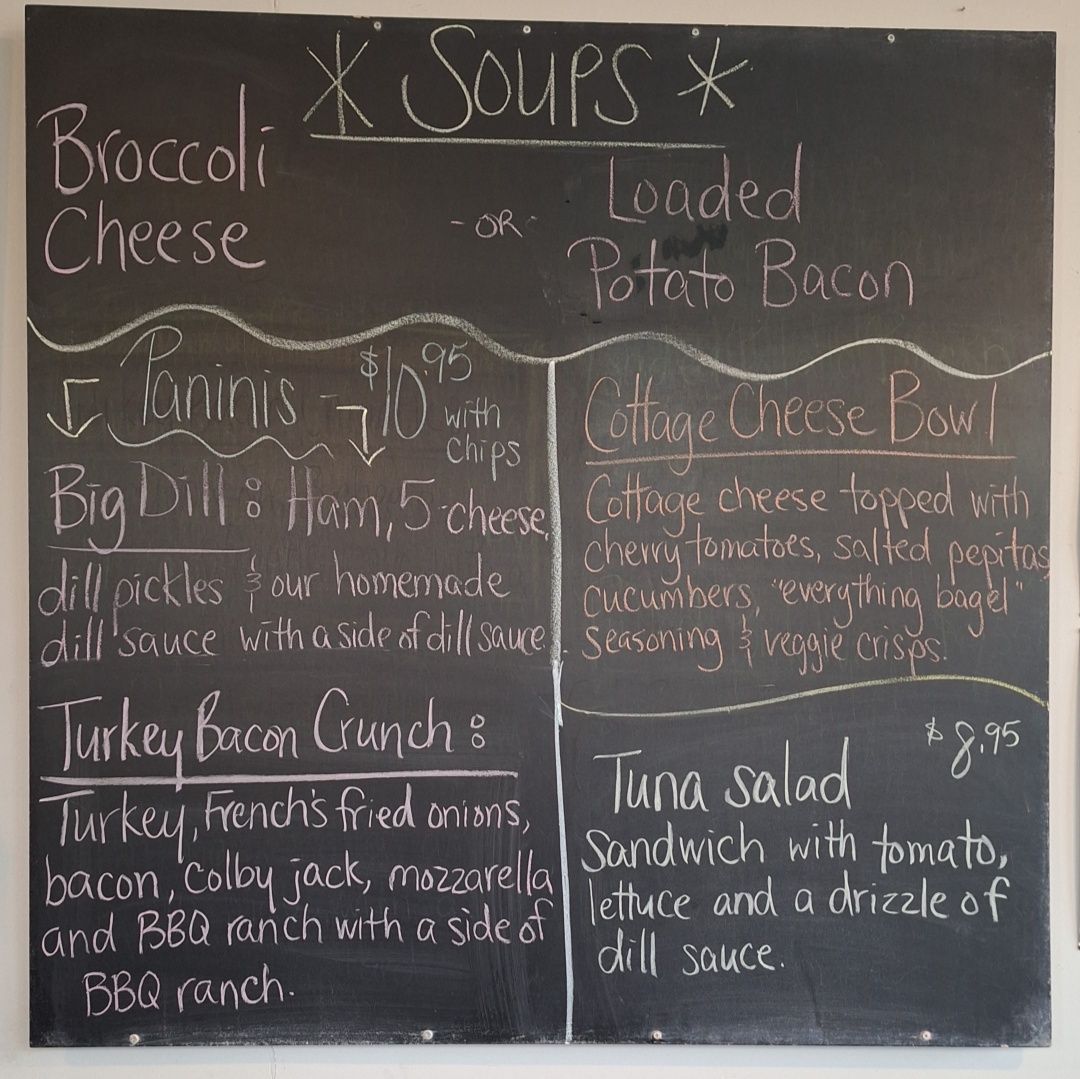 * Soups *
Broccoli
Cheese
- OR -
Loaded
Potato Bacon
Paninis - $10.95
with
chips
Big Dill: Ham, 5-cheese,
dill pickles & our homemade
dill sauce with a side of dill sauce.
Turkey Bacon Crunch:
Turkey, French's fried onions,
bacon, Colby jack, mozzarella
and BBQ ranch with a side of
BBQ ranch.
Cottage Cheese Bowl
Cottage cheese topped with
cherry tomatoes, salted pepitas,
cucumbers, "everything bagel"
seasoning & veggie crisps.
$8.95
Tuna Salad
Sandwich with tomato,
lettuce and a drizzle of
dill sauce.